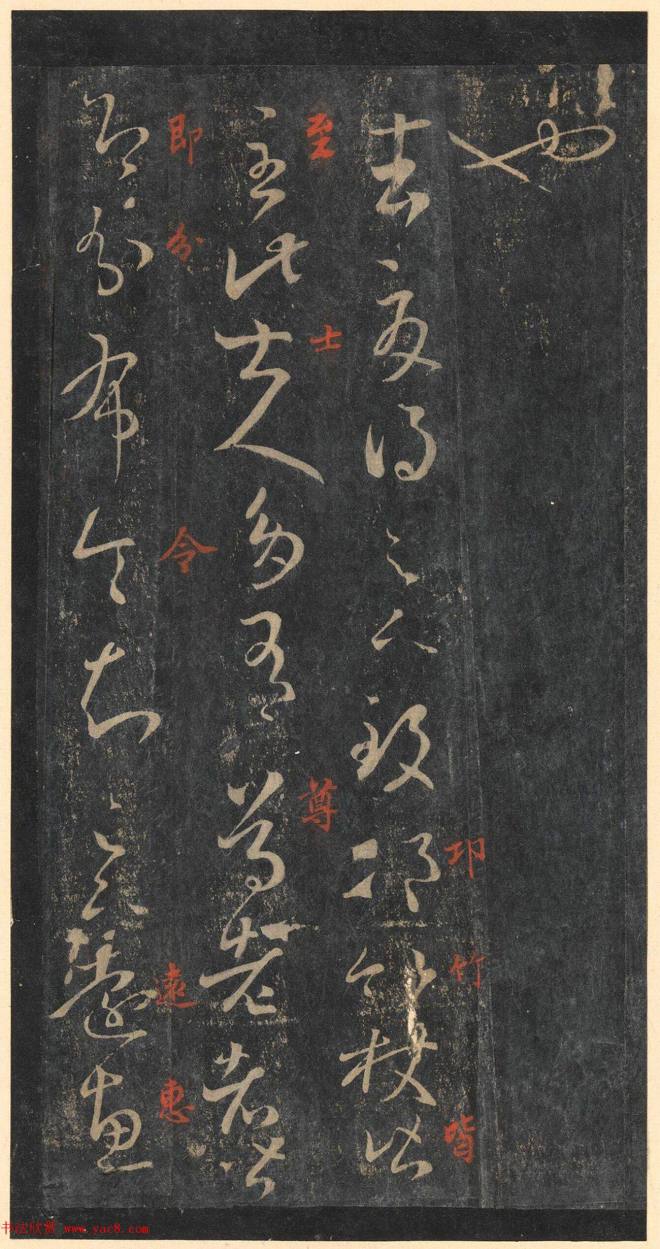 也
去夏得足下致邛竹杖皆
邛 竹 皆
至此士人多有尊老者皆
至 士 尊
即分布令知足下遠惠
即 分 令 遠 惠
书法欣赏 www.yac8.com